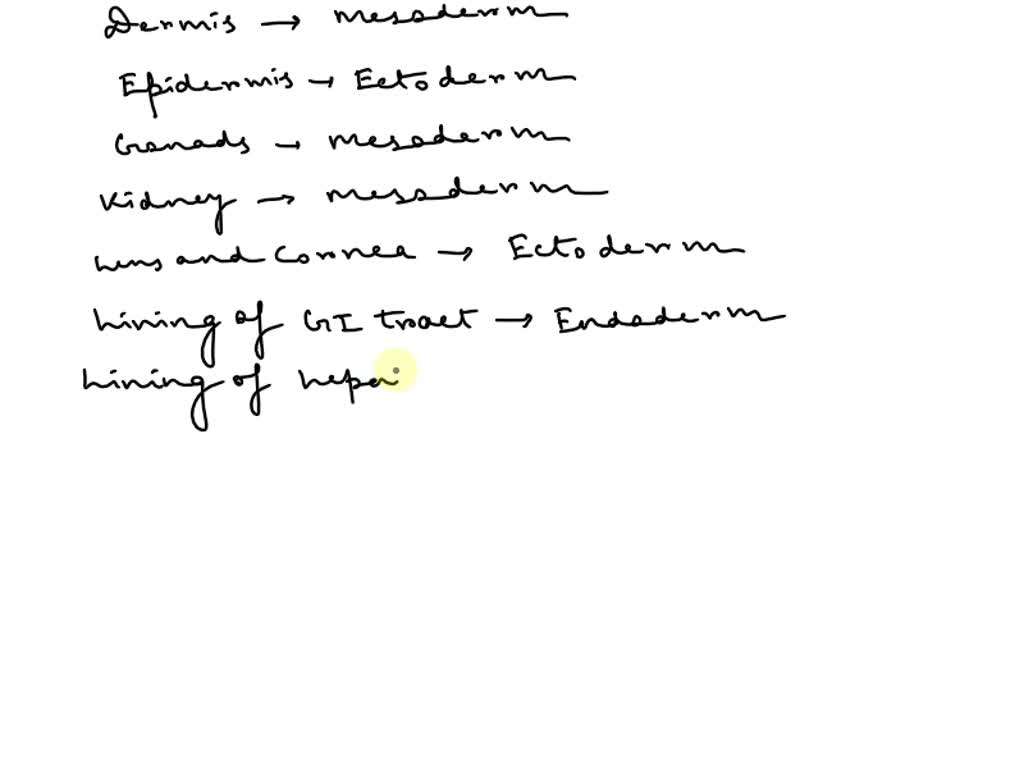 Dermis → Mesoderm
Epidermis → Ectoderm
Gonads → Mesoderm
Kidney → Mesoderm
Lens and Cornea → Ectoderm
Lining of GI tract → Endoderm
Lining of hepa